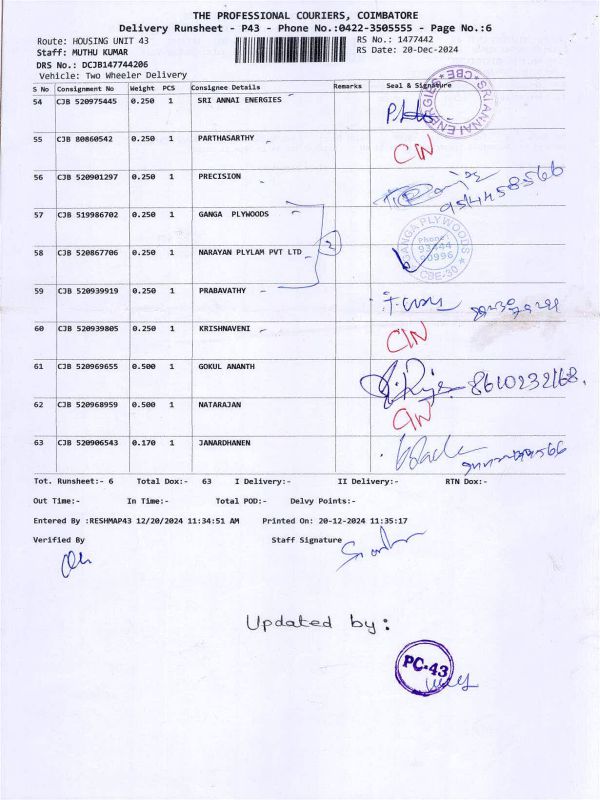 THE PROFESSIONAL COURIERS, COIMBATORE
Delivery Runsheet - P43 - Phone No.:0422-3505555 - Page No.:6
Route: HOUSING UNIT 43 RS No.: 1477442
Staff: MUTHU KUMAR RS Date: 20-Dec-2024
DRS No.: DCJB147744206
Vehicle: Two Wheeler Delivery
S No Consignment No Weight PCS Consignee Details Remarks Seal & Signature
54 CJB 520975445 0.250 1 SRI ANNAI ENERGIES SRI ANNAI ENERGIES CBE
55 CJB 80860542 0.250 1 PARTHASARTHY CIN
56 CJB 520901297 0.250 1 PRECISION
57 CJB 519986702 0.250 1 GANGA PLYWOODS GANGA PLYWOODS
2 Phone
58 CJB 520867706 0.250 1 NARAYAN PLYLAM PVT LTD CBE-30
59 CJB 520939919 0.250 1 PRABAVATHY
60 CJB 520939805 0.250 1 KRISHNAVENI CIN
61 CJB 520969655 0.500 1 GOKUL ANANTH 8610232168.
62 CJB 520968959 0.500 1 NATARAJAN CIN
63 CJB 520906543 0.170 1 JANARDHANEN
Tot. Runsheet:- 6 Total Dox:- 63 I Delivery:- II Delivery:- RTN Dox:-
Out Time:- In Time:- Total POD:- Delvy Points:-
Entered By :RESHMAP43 12/20/2024 11:34:51 AM Printed On: 20-12-2024 11:35:17
Verified By Staff Signature
Updated by:
PC-43